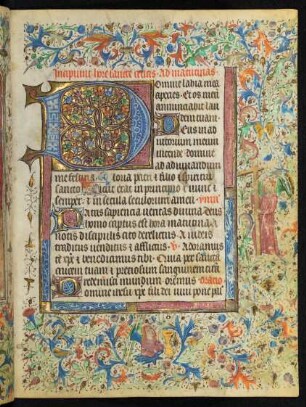 Incipiunt hore sancte crucis · Ad matutinas
Domine labia mea
aperies · et os meu
annunciabit lau
dem tuam ·
Deus in ad
iutorium meum
intende domine
ad adiuuandum
me festina · Gloria patri et filio et spiritui
sancto · Sicut erat in principio et nunc et
semper · et in secula seculorum amen · ympnus
Patris sapiencia veritas divina deus
homo captus est hora matutina A
notis discipulis cito derelictus A iudeis
traditus venditus et afflictus · V · Adoramus
te xpe et benedicimus tibi · Quia per sanctam
crucem tuam et preciosum sanguinem tuum
redemisti mundum · oremus · Oratio
Domine ihesu xpe fili dei vivi pone pas